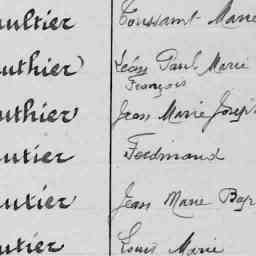 aultier Toussaint Marie
authier Léon Paul Marie
François
authier Jean Marie Joseph
autier Ferdinand
autier Jean Marie Bap
autier Louis Marie